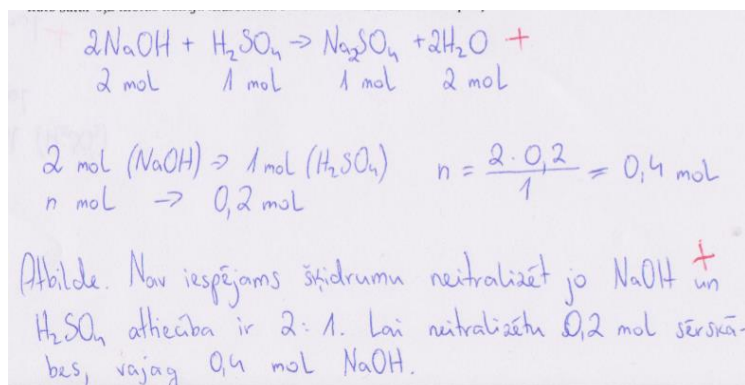 2NaOH + H₂SO₄ → Na₂SO₄ + 2H₂O +
2 mol 1 mol 1 mol 2 mol
2 mol (NaOH) → 1 mol (H₂SO₄) n = 2 · 0,2 / 1 = 0,4 mol
n mol → 0,2 mol
+
Atbilde. Nav iespējams šķidrumu neitralizēt jo NaOH un
H₂SO₄ attiecība ir 2:1. Lai neitralizētu 0,2 mol sērskā-
bes, vajag 0,4 mol NaOH.